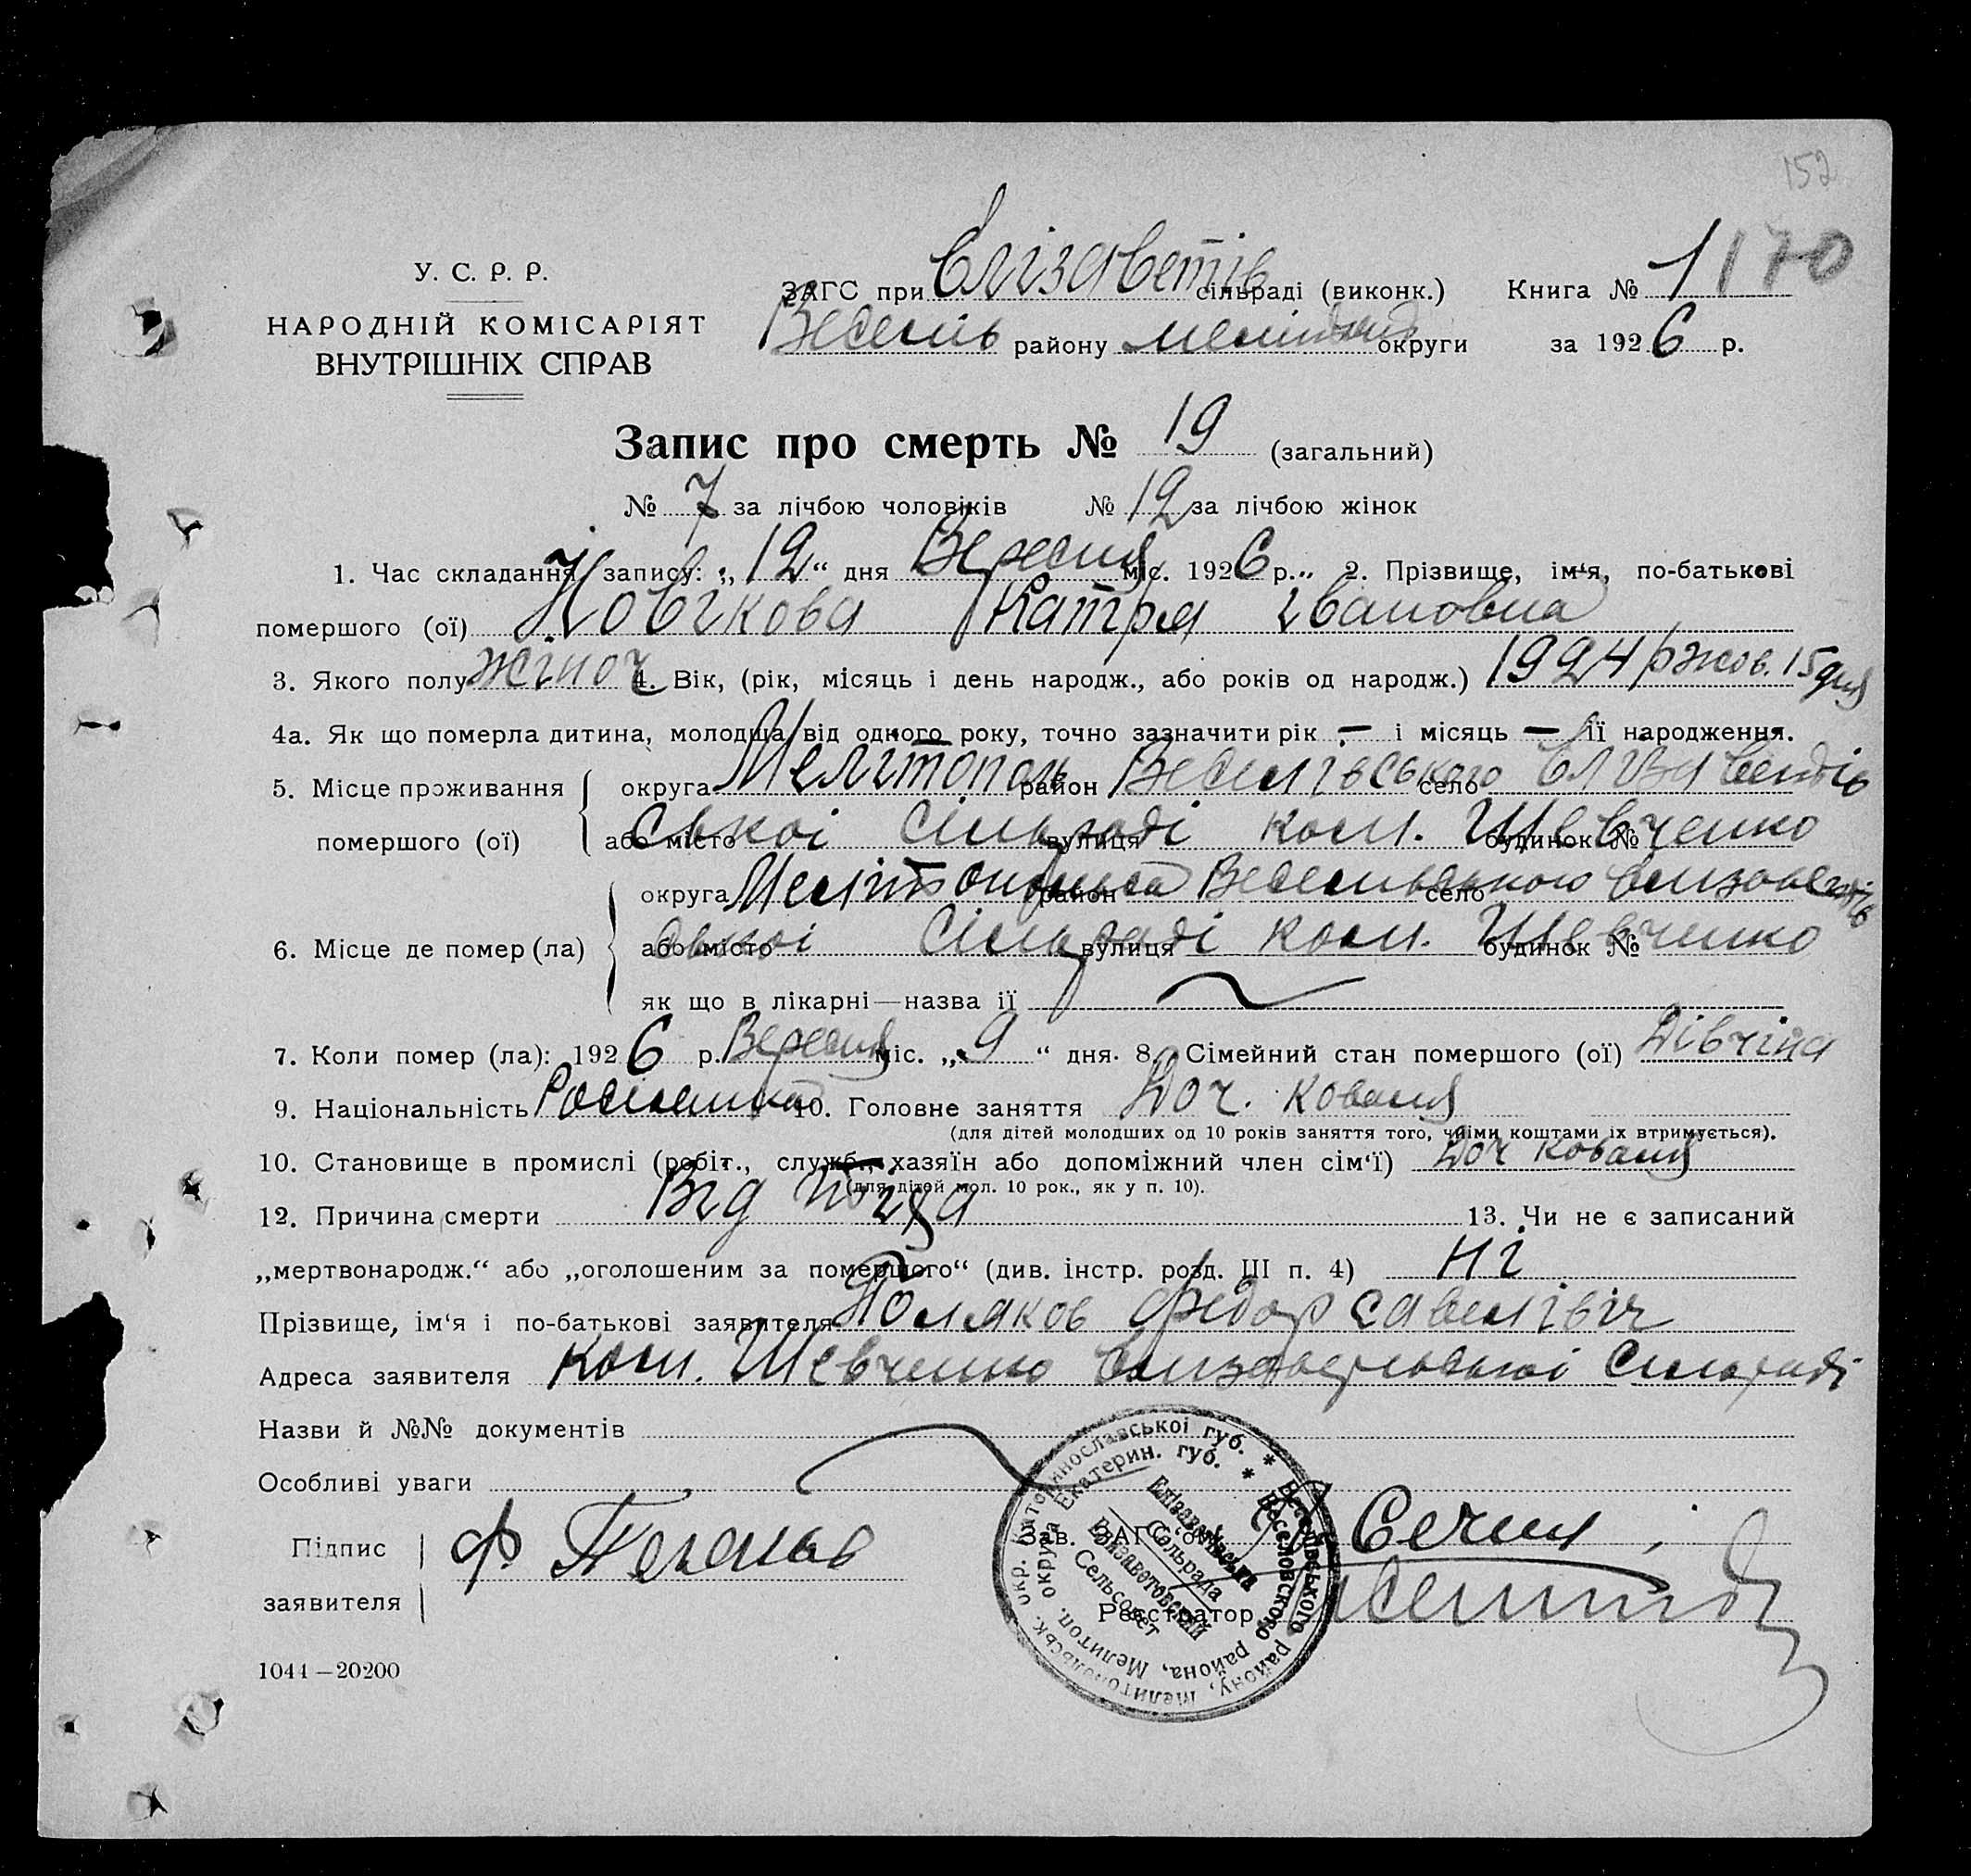 152
У. С. Р. Р.
НАРОДНІЙ КОМІСАРІЯТ
ВНУТРІШНІХ СПРАВ
ЗАГС при Єлізаветів сільраді (виконк.) Книга № 1 170
Веселів району округи за 1926 р.
Запис про смерть № 19 (загальний)
№ 7 за лічбою чоловіків № 12 за лічбою жінок
1. Час складання запису: „12“ дня Вересня міс. 1926 р. 2. Прізвище, ім‘я, по-батькові
помершого (ої) Новікова Катря Івановна
3. Якого полу жіноч 4. Вік, (рік, місяць і день народж., або років од народж.) 1924 р жов. 15 дня
4а. Як що померла дитина, молодша від одного року, точно зазначити рік — і місяць — її народження.
5. Місце проживання помершого (ої) округа Мелітополь район Веселівського село Єлизаветів
або місто ської сільраді вулиця ком. Шевченко будинок №
6. Місце де помер (ла) округа район Веселівського село
або місто ської сільраді вулиця ком. Шевченко будинок №
як що в лікарні—назва ії
7. Коли помер (ла): 1926 р. Вересня міс. „9“ дня. 8. Сімейний стан помершого (ої) Дівчіна
9. Національність 10. Головне заняття Доч. Коваля
(для дітей молодших од 10 років заняття того, чиїми коштами їх втримується).
10. Становище в промислі (робіт., служб., хазяїн або допоміжний член сім‘ї) Доч Коваля
(для дітей мол. 10 рок., як у п. 10).
12. Причина смерти Від 13. Чи не є записаний
„мертвонародж.“ або „оголошеним за помершого“ (див. інстр. розд. III п. 4) Ні
Прізвище, ім‘я і по-батькові заявителя Поляков Федор Савелівіч
Адреса заявителя Ком. Шевченко Єлизаветівської Сільраді
Назви й №№ документів
Особливі уваги
Підпис заявителя Ф.
Зав. ЗАГС‘ом
Реєстратор
Катеринославської губ. * Веселівського району, Мелитопольськ. окр.
Екатерин. губ. * Веселовского района, Мелитоп. округа
Елізаветівська Сельрада
Елизаветовский Сельсовет
1044—20200